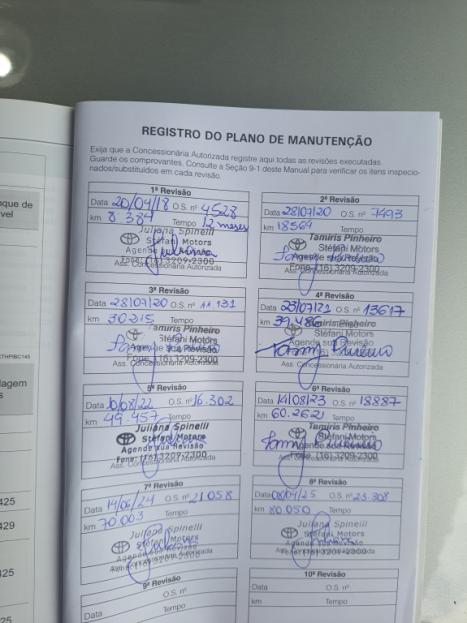 REGISTRO DO PLANO DE MANUTENÇÃO
Exija que a Concessionária Autorizada registre aqui todas as revisões executadas.
Guarde os comprovantes. Consulte a Seção 9-1 deste Manual para verificar os itens inspecio-
nados/substituídos em cada revisão.
1ª Revisão
Data 20/04/18 O.S. nº 4528
km 8 384 Tempo 12 meses
Juliana Spinelli
Stéfani Motors
Agende sua Revisão
Fone: (16) 3209-2300
Ass. Concessionária Autorizada
2ª Revisão
Data 28/07/20 O.S. nº 7493
km 18569 Tempo
Tamiris Pinheiro
Stéfani Motors
Agende sua Revisão
Fone: (16) 3209-2300
3ª Revisão
Data 28/07/20 O.S. nº 11.131
km 30215 Tempo
Tamiris Pinheiro
Stéfani Motors
Agende sua Revisão
Fone: (16) 3209-2300
Ass. Concessionária Autorizada
4ª Revisão
Data 23/07/21 O.S. nº 13617
km 39.486
Tamiris Pinheiro
Stéfani Motors
Agende sua Revisão
Ass. Concessionária Autorizada
5ª Revisão
Data 10/08/22 O.S. nº 16.302
km 49.457 Tempo
Juliana Spinelli
Stéfani Motors
Agende sua Revisão
Fone: (16) 3209-2300
Ass. Concessionária Autorizada
6ª Revisão
Data 14/08/23 O.S. nº 18887
km 60.262 Tempo
Stéfani Motors
Agende sua Revisão
Fone: (16) 3209-2300
7ª Revisão
Data 14/06/24 O.S. nº 21.058
km 70 003 Tempo
Juliana Spinelli
Stéfani Motors
Agende sua Revisão
Fone: (16) 3209-2300
8ª Revisão
Data 08/04/25 O.S. nº 23.308
km 80.050 Tempo
Juliana Spinelli
Stéfani Motors
Agende sua Revisão
Fone: (16) 3209-2300
9ª Revisão
Data O.S. nº
km Tempo
10ª Revisão
Data O.S. nº
km Tempo